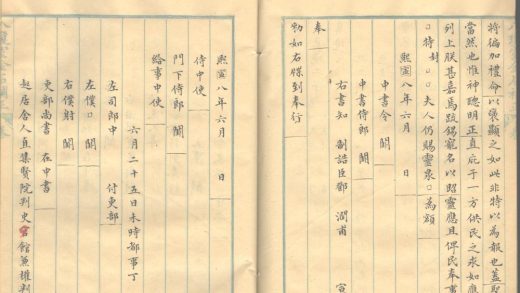 將徧加禮命以褒顯之如此非特以為報也蓋聖
當然也惟神聰明正直庇于一方供民之求如應
列上朕甚嘉焉疏錫寵名以昭靈應且俾民奉事
□特封□□夫人仍賜靈泉□為額
熙寧八年六月 日
中書令 闕
中書侍郎 闕
右書知 制誥臣鄧 潤甫 宣
奉
勅如右牒到奉行
熙寧八年六月 日
侍中使
門下侍郎 闕
給事中使
六月二十五日未時都事丁
左司郎中 付吏部
左僕□ 闕
右僕射 闕
吏部尚書 在中書
起居舍人直集賢院判史館兼權判